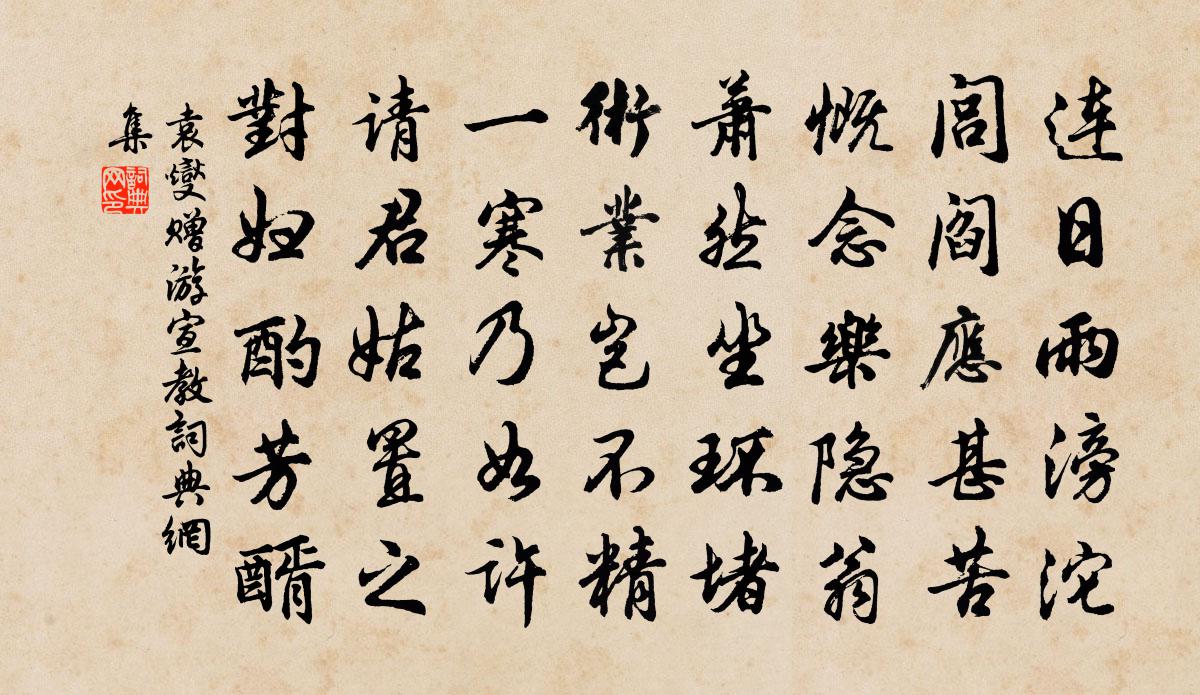 連日雨滂沱
閭閻應甚苦
慨念樂隐翁
蕭然坐环堵
術業岂不精
一寒乃如许
请君姑置之
對妇酌芳醑
袁燮赠游宣教詞典網
集
詞典网印